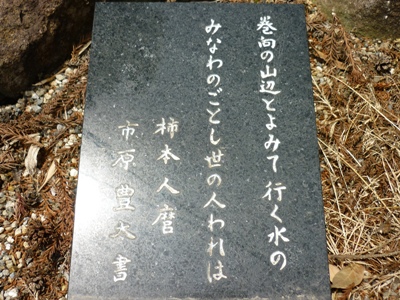 巻向の山辺とよみて行く水の
みなわのごとし世の人われは
柿本人麿
市原豊太書